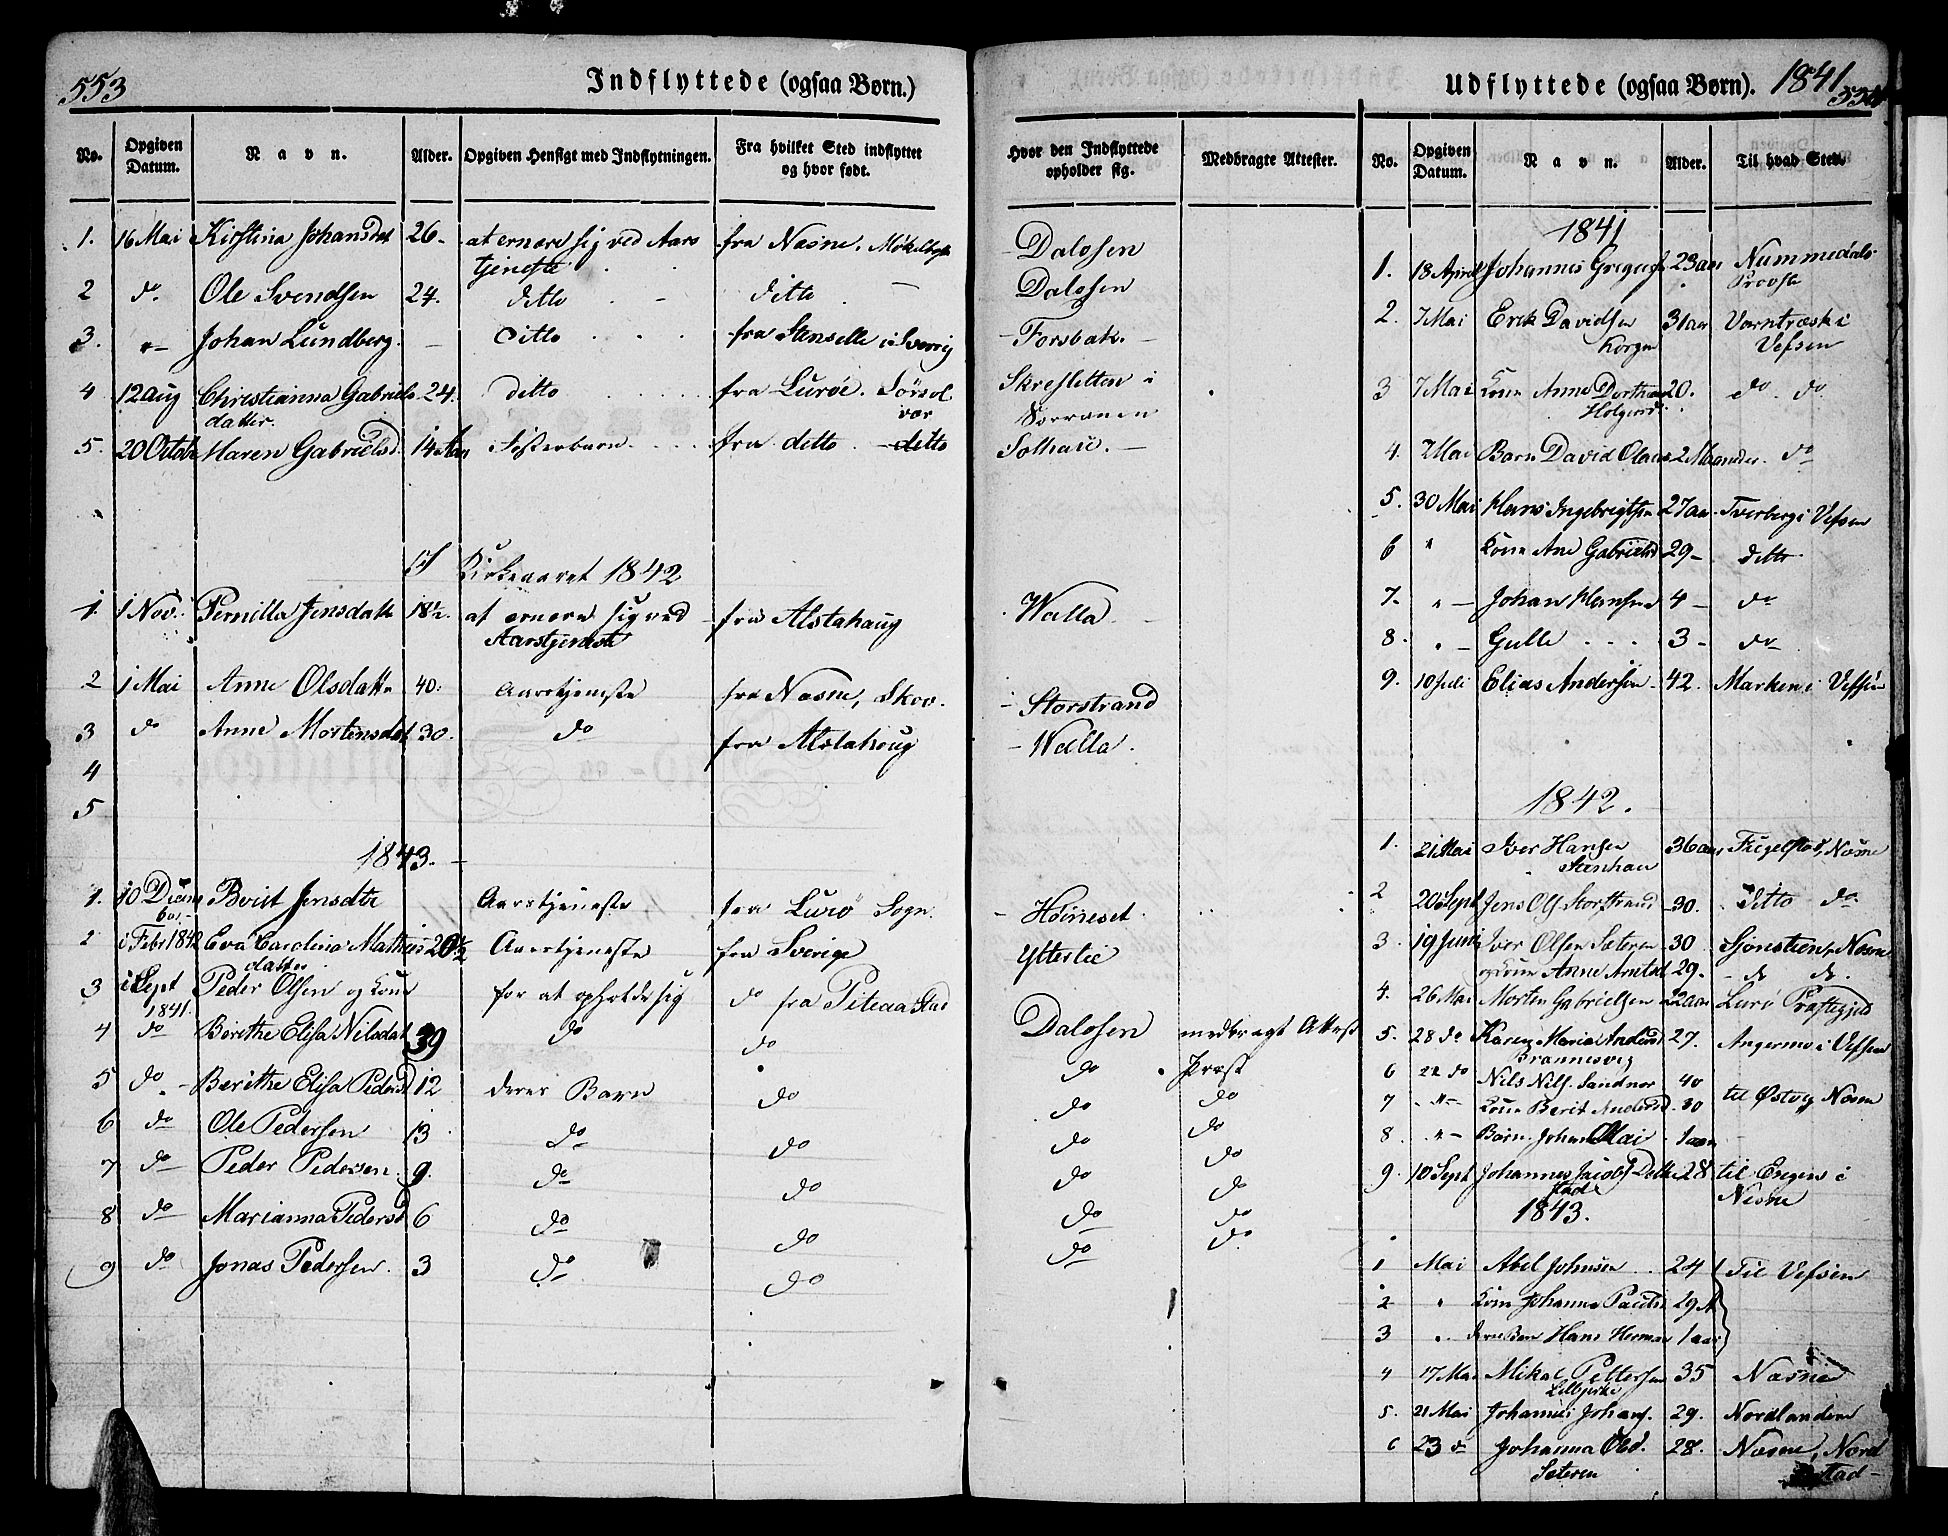 553
Indflyttede (ogsaa Børn.)
No. Opgiven Datum. Navn. Alder. Opgiven Hensigt med Indflytningen. Fra hvilket Sted indflyttet og hvor født. Hvor den Indflyttede opholder sig. Medbragte Attester.
1. 16 Mai Kirstina Johansdat 26- at ernære sig ved Aars fra Næsne. - Dalosen
tjeneste
2 do. Ole Svendsen 24. ditto - ditto - Dalosen
3. Johan Lundberg. - ditto fra Stenselle i Sverrig - Forsbak. -
4 12 aug Christianna Gabriels 24. ditto fra Lurøe. Sørsol Skresletten i
datter. vær
5. 20 Octob Maren Gabrielsd 14 Aar Søsterbarn fra ditto - ditto -
Kirkeaaret 1842
1. 1 Nov. Pernilla Jensdatt 18½ at ernære sig ved fra Alstahaug Walla
Aarstjeneste
2 1 Mai Anne Olsdatt 40. Aarstjeneste fra Næsne, Skov. - Storstrand
3 do Anne Mortensdat 30. do fra Alstahoug - Walla.
4
5
1843. -
1. 10 Decem Berit Jensdtr Aarstjeneste fra Lurö Sogn. -
ber
2 1 Febr 1842 Eva Carolina Mathisi 20½ Aarstjeneste fra Sverige Ytterlie
datter
3 1 Sept Peder Olsen og Kone for at opholde sig do fra Piteaa Stad Dalosen medbragt Attest
1841.
4 do Berithe Elisa Nilsdat 39 do do do Præst
5 do - Berithe Elisa Pedersd 12 deres Barn do do do
6 do Ole Pedersen 13 do do do do
7 do Peder Pedersen. 9. do do do do
8 do Marianna Pedersd 6 do do do do
9 do Jonas Pedersen. 3 do do do do
Udflyttede (ogsaa Børn). 1841
554
No. Opgiven Datum. Navn. Alder. Til hvad Sted.
1841
1. 18 April Johannes Gregers 23 aar Nummedals
Provsti
2. 7 Mai Erik Davidsen 31 aar Varntræsk i
Korgen Vefsen
3 7 Mai Kone Anne Dorthea 20. do do
Holgersd
4. 7 Mai Barn David Olaus 2 Maaneder. do
5. 30 Mai Hans Ingebrigtsen 27 aar Tverberg i Vefsen
6 " Kone Ane Gabrielsd 29- ditto
7. " - Johan Hansen 4 - do
8. " - Gulle 3 - do
9. 10 Juli Elias Andersen - 42. Marken i Vefsen
1842.
1. 21 Mai Iver Hansen 36 aar Fugelstad, Næsne
Stenhau
2 20 Sept Jens Ols Storstrand - 30. Ditto do
3. 19 Juni Iver Olsen Sæteren 30 Sjonstien, Næsne
og Kone Anne Arntsd 29. - do do
4. 26 Mai Morten Gabrielsen 22 aar Lurö Præstegjeld
5. 28 do Karen Maria Andersd 27. Angermo i Vefsen
Brannesvig
6 22 do Nils Nils. Sandnor 40 til Østvig Næsne
7 " - Kone Berit Andersd 30
8. " - Barn Johan Olai 1 aar
9. 10 Sept Johannes Jacobs 28 til i
Næsne
1843.
1 Mai Abel Johnsen 24 Til Vefsen
2 " Kone Johanna Paulsd 29 A
3 " deres Barn Hans Herman 1 aar
4 17 Mai Mikal Pettersen 35 Næsne
5. 21 Mai Johannes Johans. 29. Nordlandene
6 23 do Johanna Olsd. 28. Næsne, Nord
Sæteren stad -